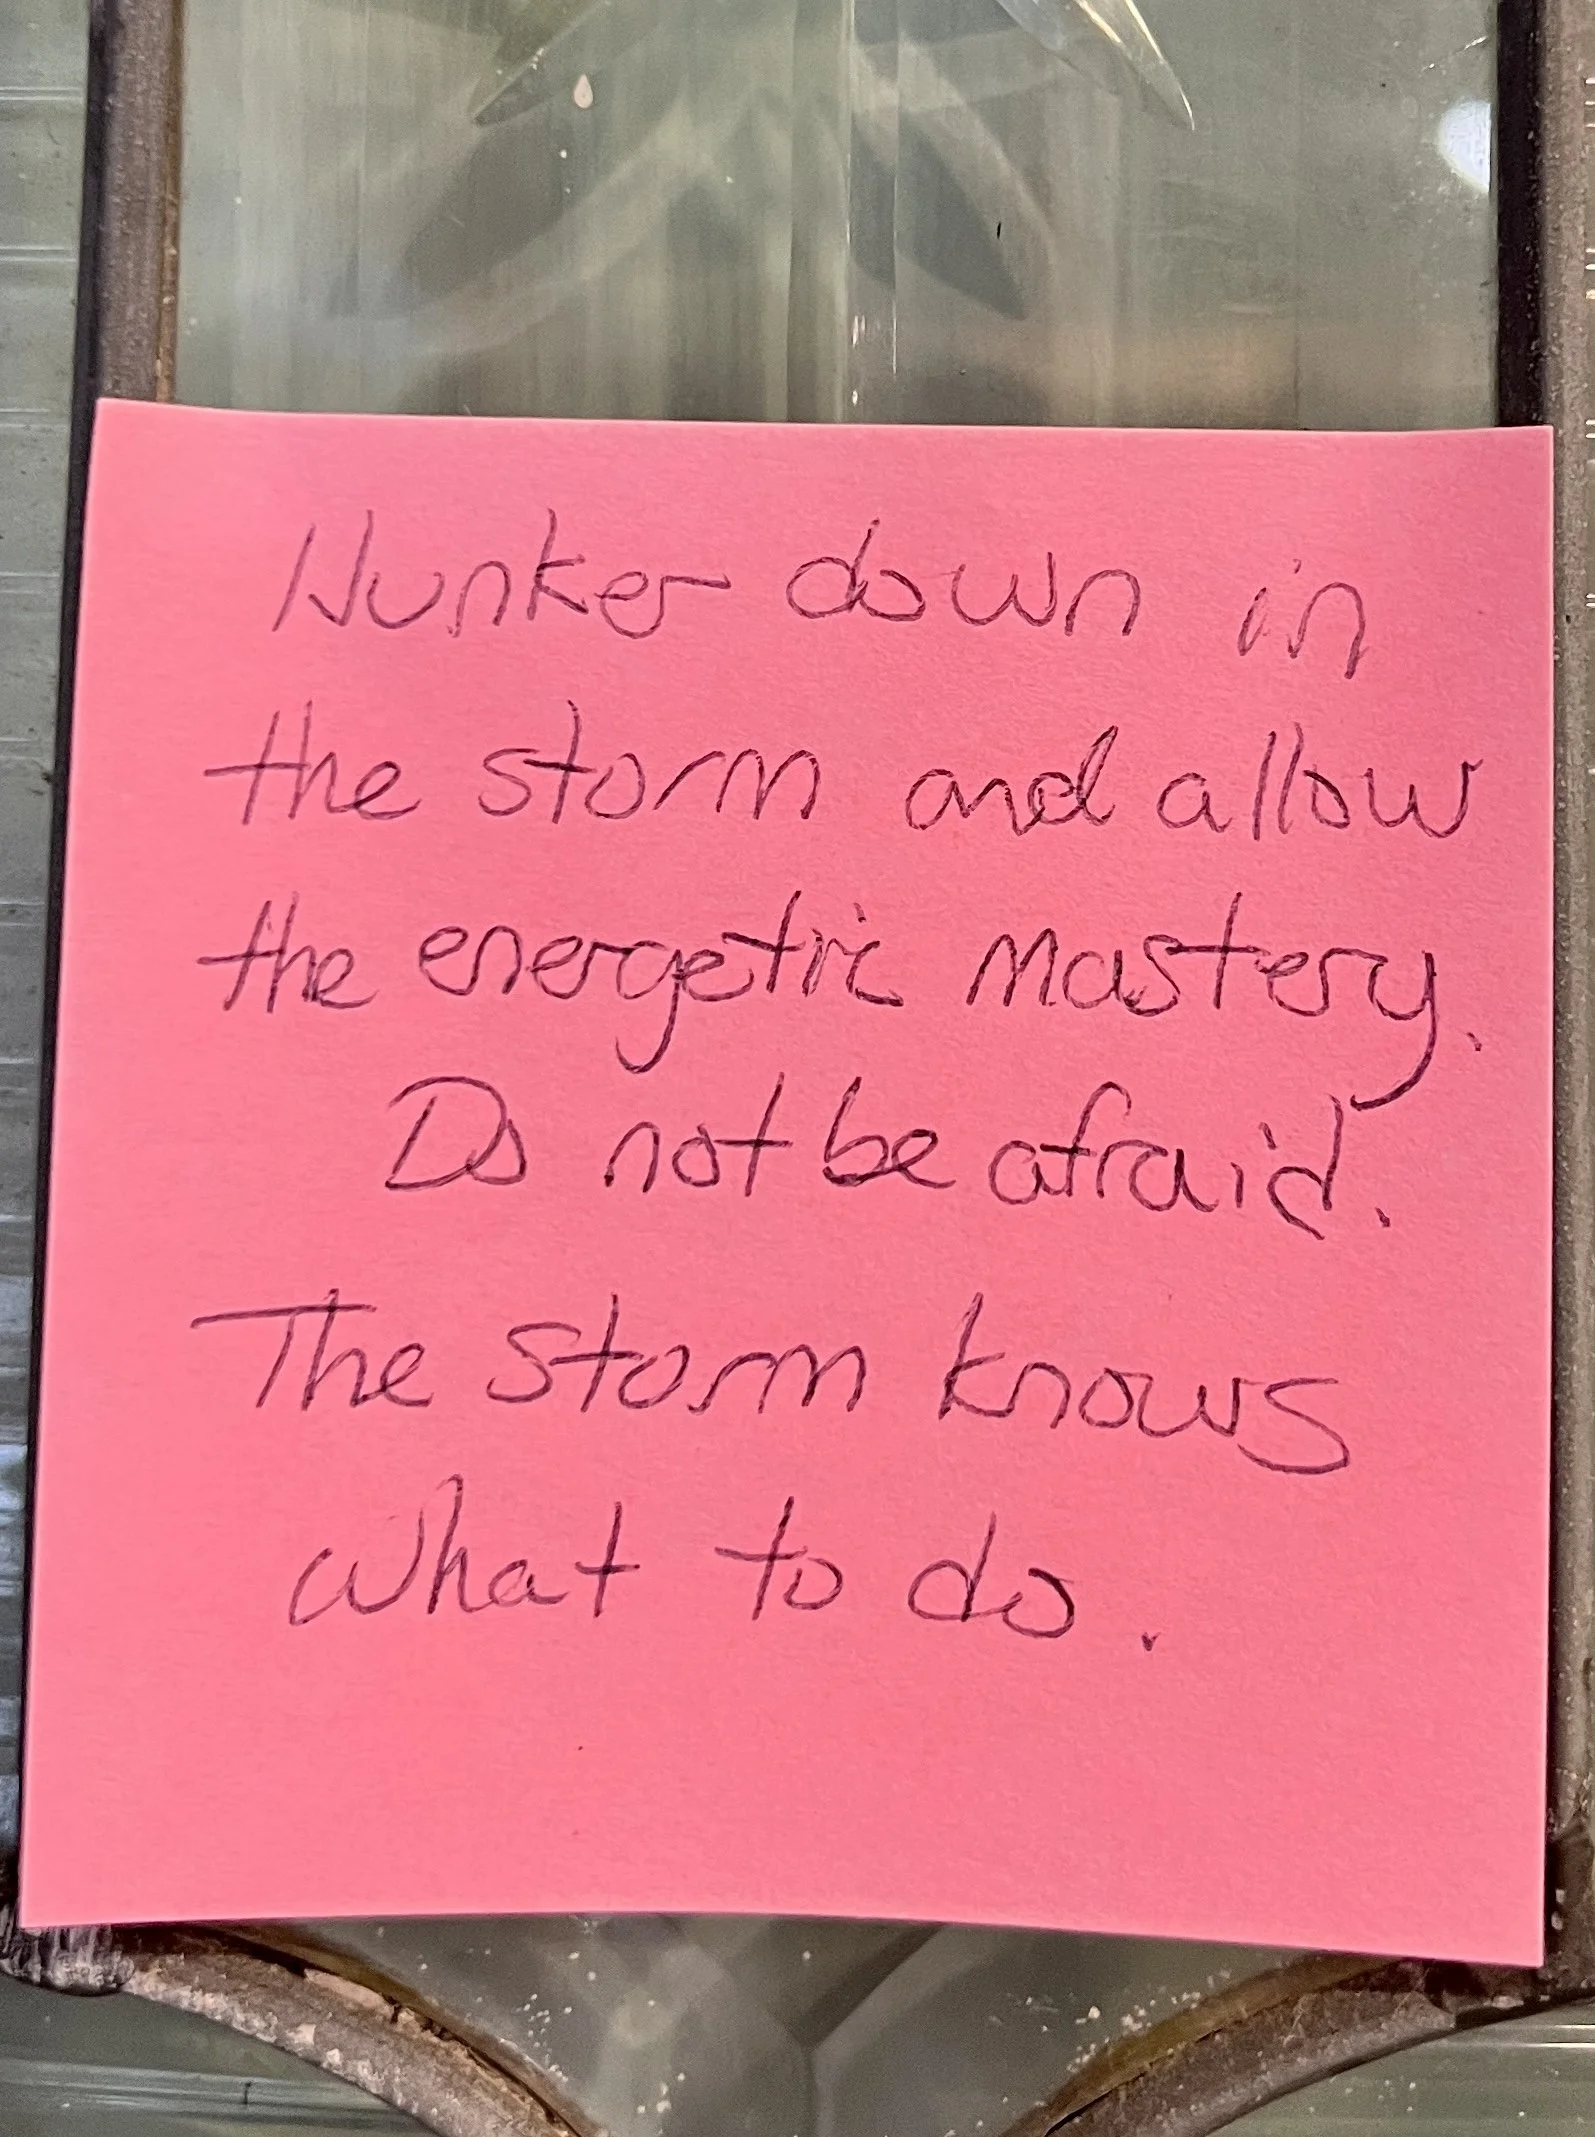 Hunker down in
the storm and allow
the energetic mastery.
Do not be afraid.
The storm knows
what to do.